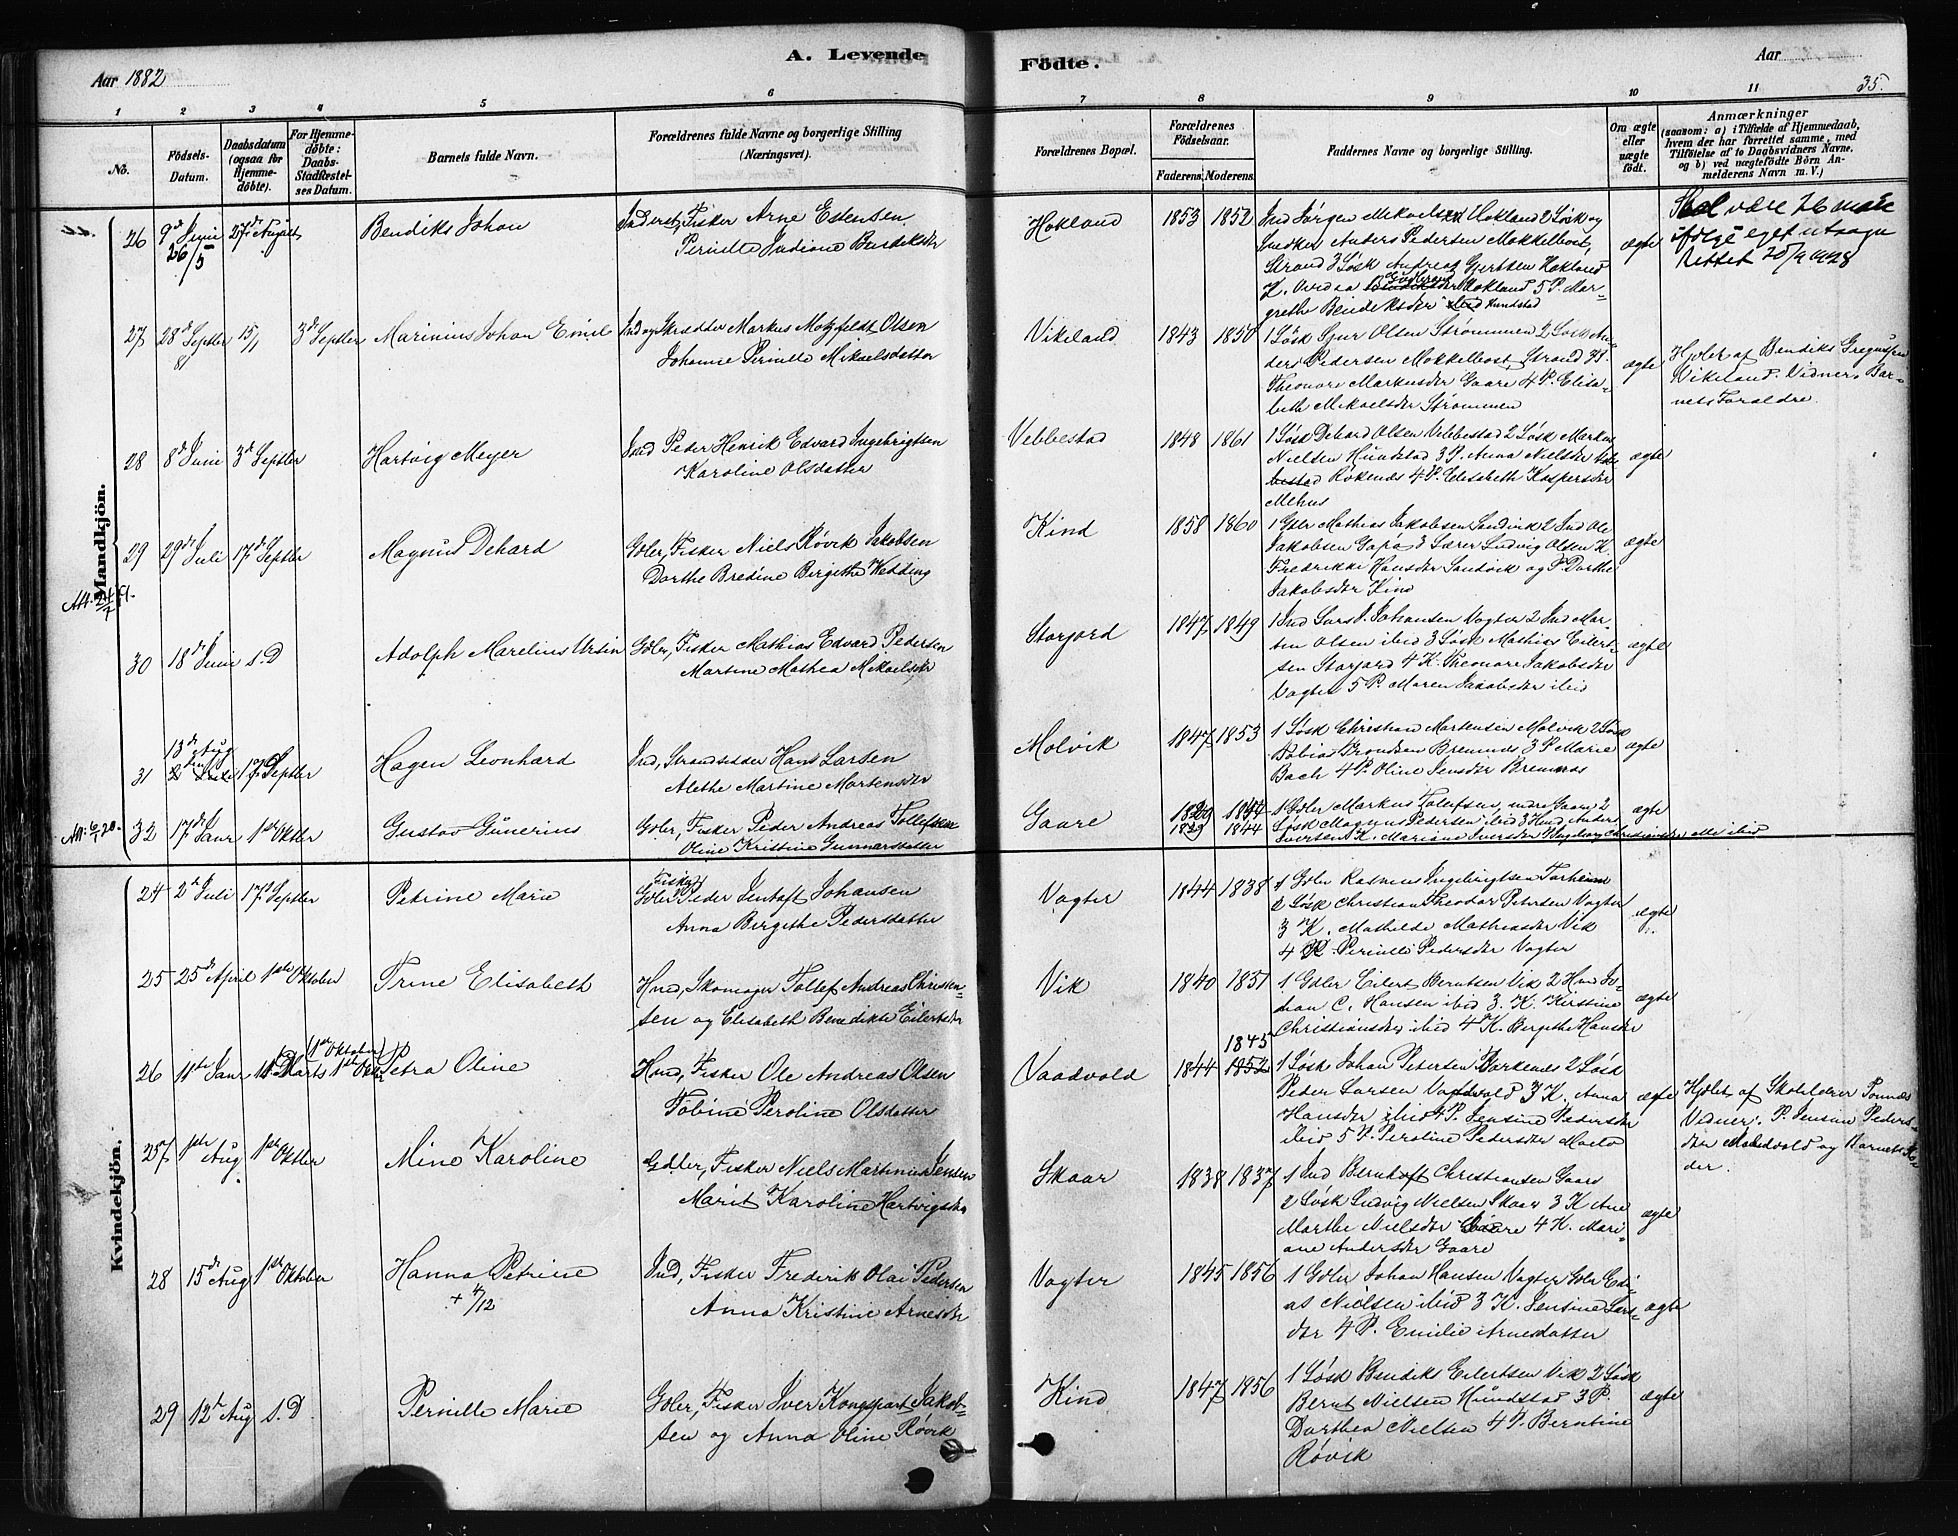 A. Levende
Födte.
Aar 1882
Aar
35.
1 2 3 4 5 6 7 8 9 10 11
No.
Födsels-
Datum.
Daabsdatum
(ogsaa för
Hjemme-
döbte).
For Hjemme-
döbte:
Daabs-
Stadfæstel-
ses Datum.
Barnets fulde Navn.
Forældrenes fulde Navne og borgerlige Stilling
(Næringsvei).
Forældrenes Bopæl.
Forældrenes
Födselsaar.
Faderens. Moderens.
Faddernes Navne og borgerlige Stilling.
Om ægte
eller
uægte
födt.
Anmærkninger
(saasom: a) i Tilfælde af Hjemmedaab,
hvem der har forrettet samme, med
Tilföielse af to Daabsvidners Navne,
og b) ved uægtefödte Börn An-
melderens Navn m. V.)
Mandkjön.
26 9de Juni 27de August Bendiks Johan
26/5
Inderst, Fisker Arne Estensen
Pernille Indiane Bendiksdr
Hokland 1853 1852
Ind Jørgen Mikaelsen Hokland 2 Løsk og
Snedker Anders Pedersen Mokkelbost,
Strand 3 Løsk Andreas Gjertsen Hokland
Hokland 5 P. Mar-
grethe Bendiksdr Hundstad
ægte
Skal være 26 mai
ifølge eget utsagn
Rettet 20/4 1928
27 28de Septbr 15/1 3de Septbr Marinius Johan Emil
81
Ind og Skrædder Markus Motzfeldt Olsen
Johanne Pernille Mikaelsdatter
Vikeland 1843 1850
1 Løsk Sjur Olsen Strømmen 2 Løsk An-
ders Pedersen Mokkelbost Strand 3 P.
Theonore Markusdr Gaare 4 P. Elisa-
beth Mikaelsdr Strømmen
ægte
Hjdbt af Bendiks Gregussen
Vikeland. Vidner: Bar-
nets Forældre.
28 8de Juni 3de Septbr Hartvig Meyer
Ind Peder Henrik Edvard Ingebrigtsen
Karoline Olsdatter
Vebbestad 1848 1861
1 Løsk Dehard Olsen Vebbestad 2 Løsk Markus
Nielsen Hundstad 3 P. Anna Nielsdr
Røkenes 4 P. Elisabeth Kaspersdr
Mehus
ægte
29 29de Juli 17de Septbr Magnus Dehard
Gdbr, Fisker Niels Røvik Jakobsen
Dorthe Bredine Birgithe Hedding
Kind 1858 1860
1 Gdbr Mathias Jakobsen Sandvik 2 Ind Ole
Jakobsen Gapø 3 Lærer Ludvig Olsen K.
Fredrikke Hansdr Sandvik og P Dorthe
Jakobsdr Kind
ægte
Att. 24/7 51.
30 18de Juni s.D Adolph Marelius Ursin
Gdbr, Fisker Mathias Edvard Pedersen
Martine Mathea Mikaelsdr
Storjord 1847 1849
1 Ind Lars P. Johansen Vogter 2 Ind Mar-
tin Olsen ibid 3 Løsk Mathias Eilert-
sen Storjord 4 K. Theonore Jakobsdr
Vogter 5 P. Maren Jakobsdr ibid
ægte
31 13de Aug 17de Septbr Hagen Leonhard
Ind, Strandsidder Hans Larsen
Alethe Martine Mortensdr
Molvik 1847 1853
1 Løsk Christian Mortensen Molvik 2 Løsk
Tobias Trondsen Bremnes 3 P Marie
Bach 4 P. Oline Jensdr Bremnes
ægte
Att. 6/1 20.
32 17de Janr 1ste Oktbr Gustav Gunerius
Gdbr, Fisker Peder Andreas Tollefsen
Oline Kristine Gunnarsdatter
Gaare 1829 1844
1829 1844
1 Gdbr Markus Tollefsen, indre Gaare 2
Løsk Magnus Pedersen ibid 3 Hmd Anders
Iversen K. Mariane Iversdr Ingeborg Christiansdr, Alle ibid
ægte
Kvindekjön.
24 2de Juli 17de Septbr Petrine Marie
Fisker
Gdbr, Peder Jentoft Johansen
Anna Birgithe Pedersdatter
Vogter 1844 1838
1 Gdbr Rasmus Ingebrigtsen Forheim
2 Løsk Christian Theodor Petersen Vogter
3 K. Mathilde Mathiasdr Vik
4 P. Pernille Pedersdr Vogter
ægte
25 25de April 1ste Oktober Trine Elisabeth
Hmd, Skomager Tollef Andreas Christen-
sen og Elisabeth Benedikte Eilertsdr
Vik 1840 1851
1 Gdbr Eilert Berntsen Vik 2 Hmd Jo-
han C. Hansen ibid 3. K. Kirstine
Christiansdr ibid 4 K. Bergithe Hansdr
ægte
26 11te Janr 11 Marts 1ste Oktbr Petra Oline
(1ste Oktober)
Hmd, Fisker Ole Andreas Olsen
Tobine Peroline Olsdatter
Vaadvold 1844 1845
1852
1 Løsk Johan Petersen Borkenes 2 Løsk
Peder Larsen Vaadvold 3 K. Anna
Hansdr ibid 4 P. Jensine Pedersdr
ibid 5 P. Peroline Pedersdr
ægte
Hjdbt af Skoleholder Tonnes
Vidner: P. Jensine Peders-
dr Vaadvold og Barnets Mo-
der.
27 1ste Aug 1ste Oktbr Mine Karoline
Gdbr, Fisker Niels Martinus Jensen
Marit Karoline Hartvigsdr
Skaar 1838 1837
1 Ind Berntoft Christiansen Gaare
2 Løsk Ludvig Nielsen Skaar 3 K Ane
Marthe Nielsdr Gaare 4 K. Mari-
ane Andersdr Gaare
ægte
28 15de Aug 1ste Oktober Hanna Petrine
+ 4/12
Ind, Fisker Frederik Olai Pedersen
Anna Kristine Arnesdr
Vogter 1845 1856
1 Gdbr Johan Hansen Vogter Gdbr Edi-
as Nielsen ibid 3 K. Jensine Lars-
dr 4 P. Emilie Arnesdatter
ægte
29 12te Aug s.D. Pernille Marie
Gdbr, Fisker Iver Kongspart Jakob-
sen og Anna Oline Røvik
Kind 1847 1856
1 Løsk Bendiks Eilertsen Vik 2 Løsk
Bernt Nielsen Hundstad 3 P.
Dorthea Nielsen 4 P. Berntine
Røvik
ægte